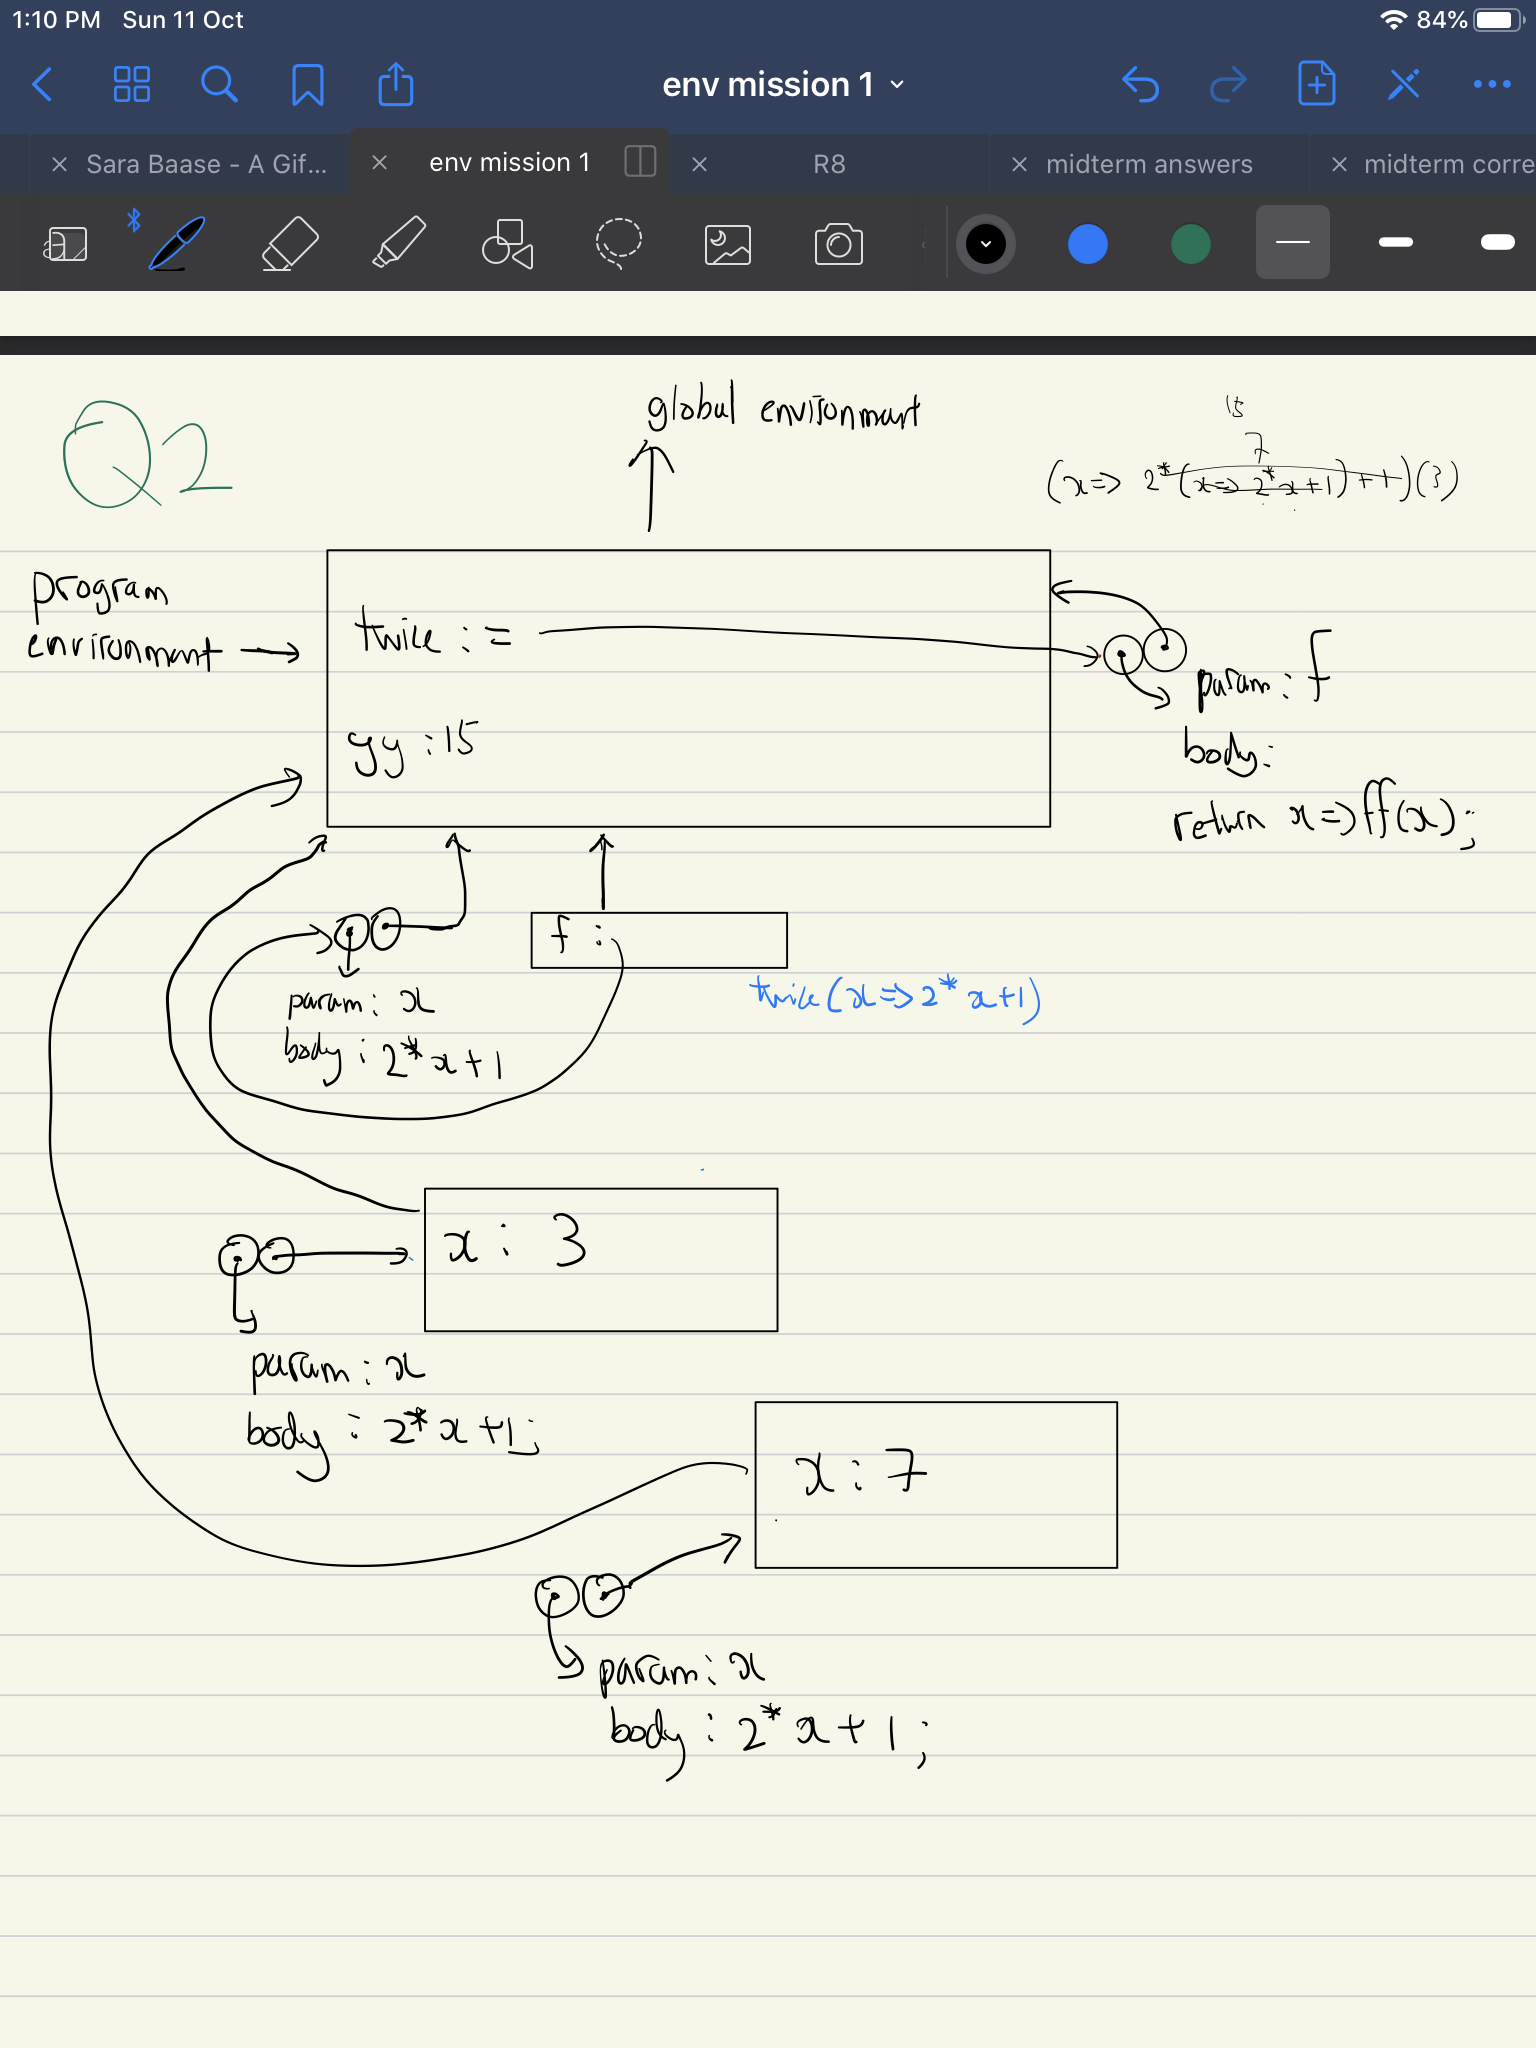 1:10 PM Sun 11 Oct
84%
env mission 1
Sara Baase - A Gif...
env mission 1
R8
midterm answers
midterm corre
Q2
global environment
15
7
(x => 2*(x => 2*x+1)+1)(3)
program
environment
twice :=
yy : 15
param : f
body :
return x => ff(x) ;
f :
twice (x => 2* x+1)
param : x
body : 2* x + 1
x : 3
param : x
body : 2* x +1;
x : 7
param : x
body : 2* x + 1 ;